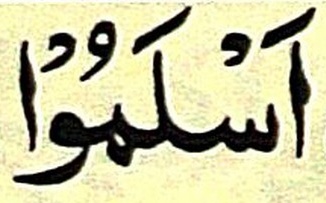 اَسْلَمُوْا